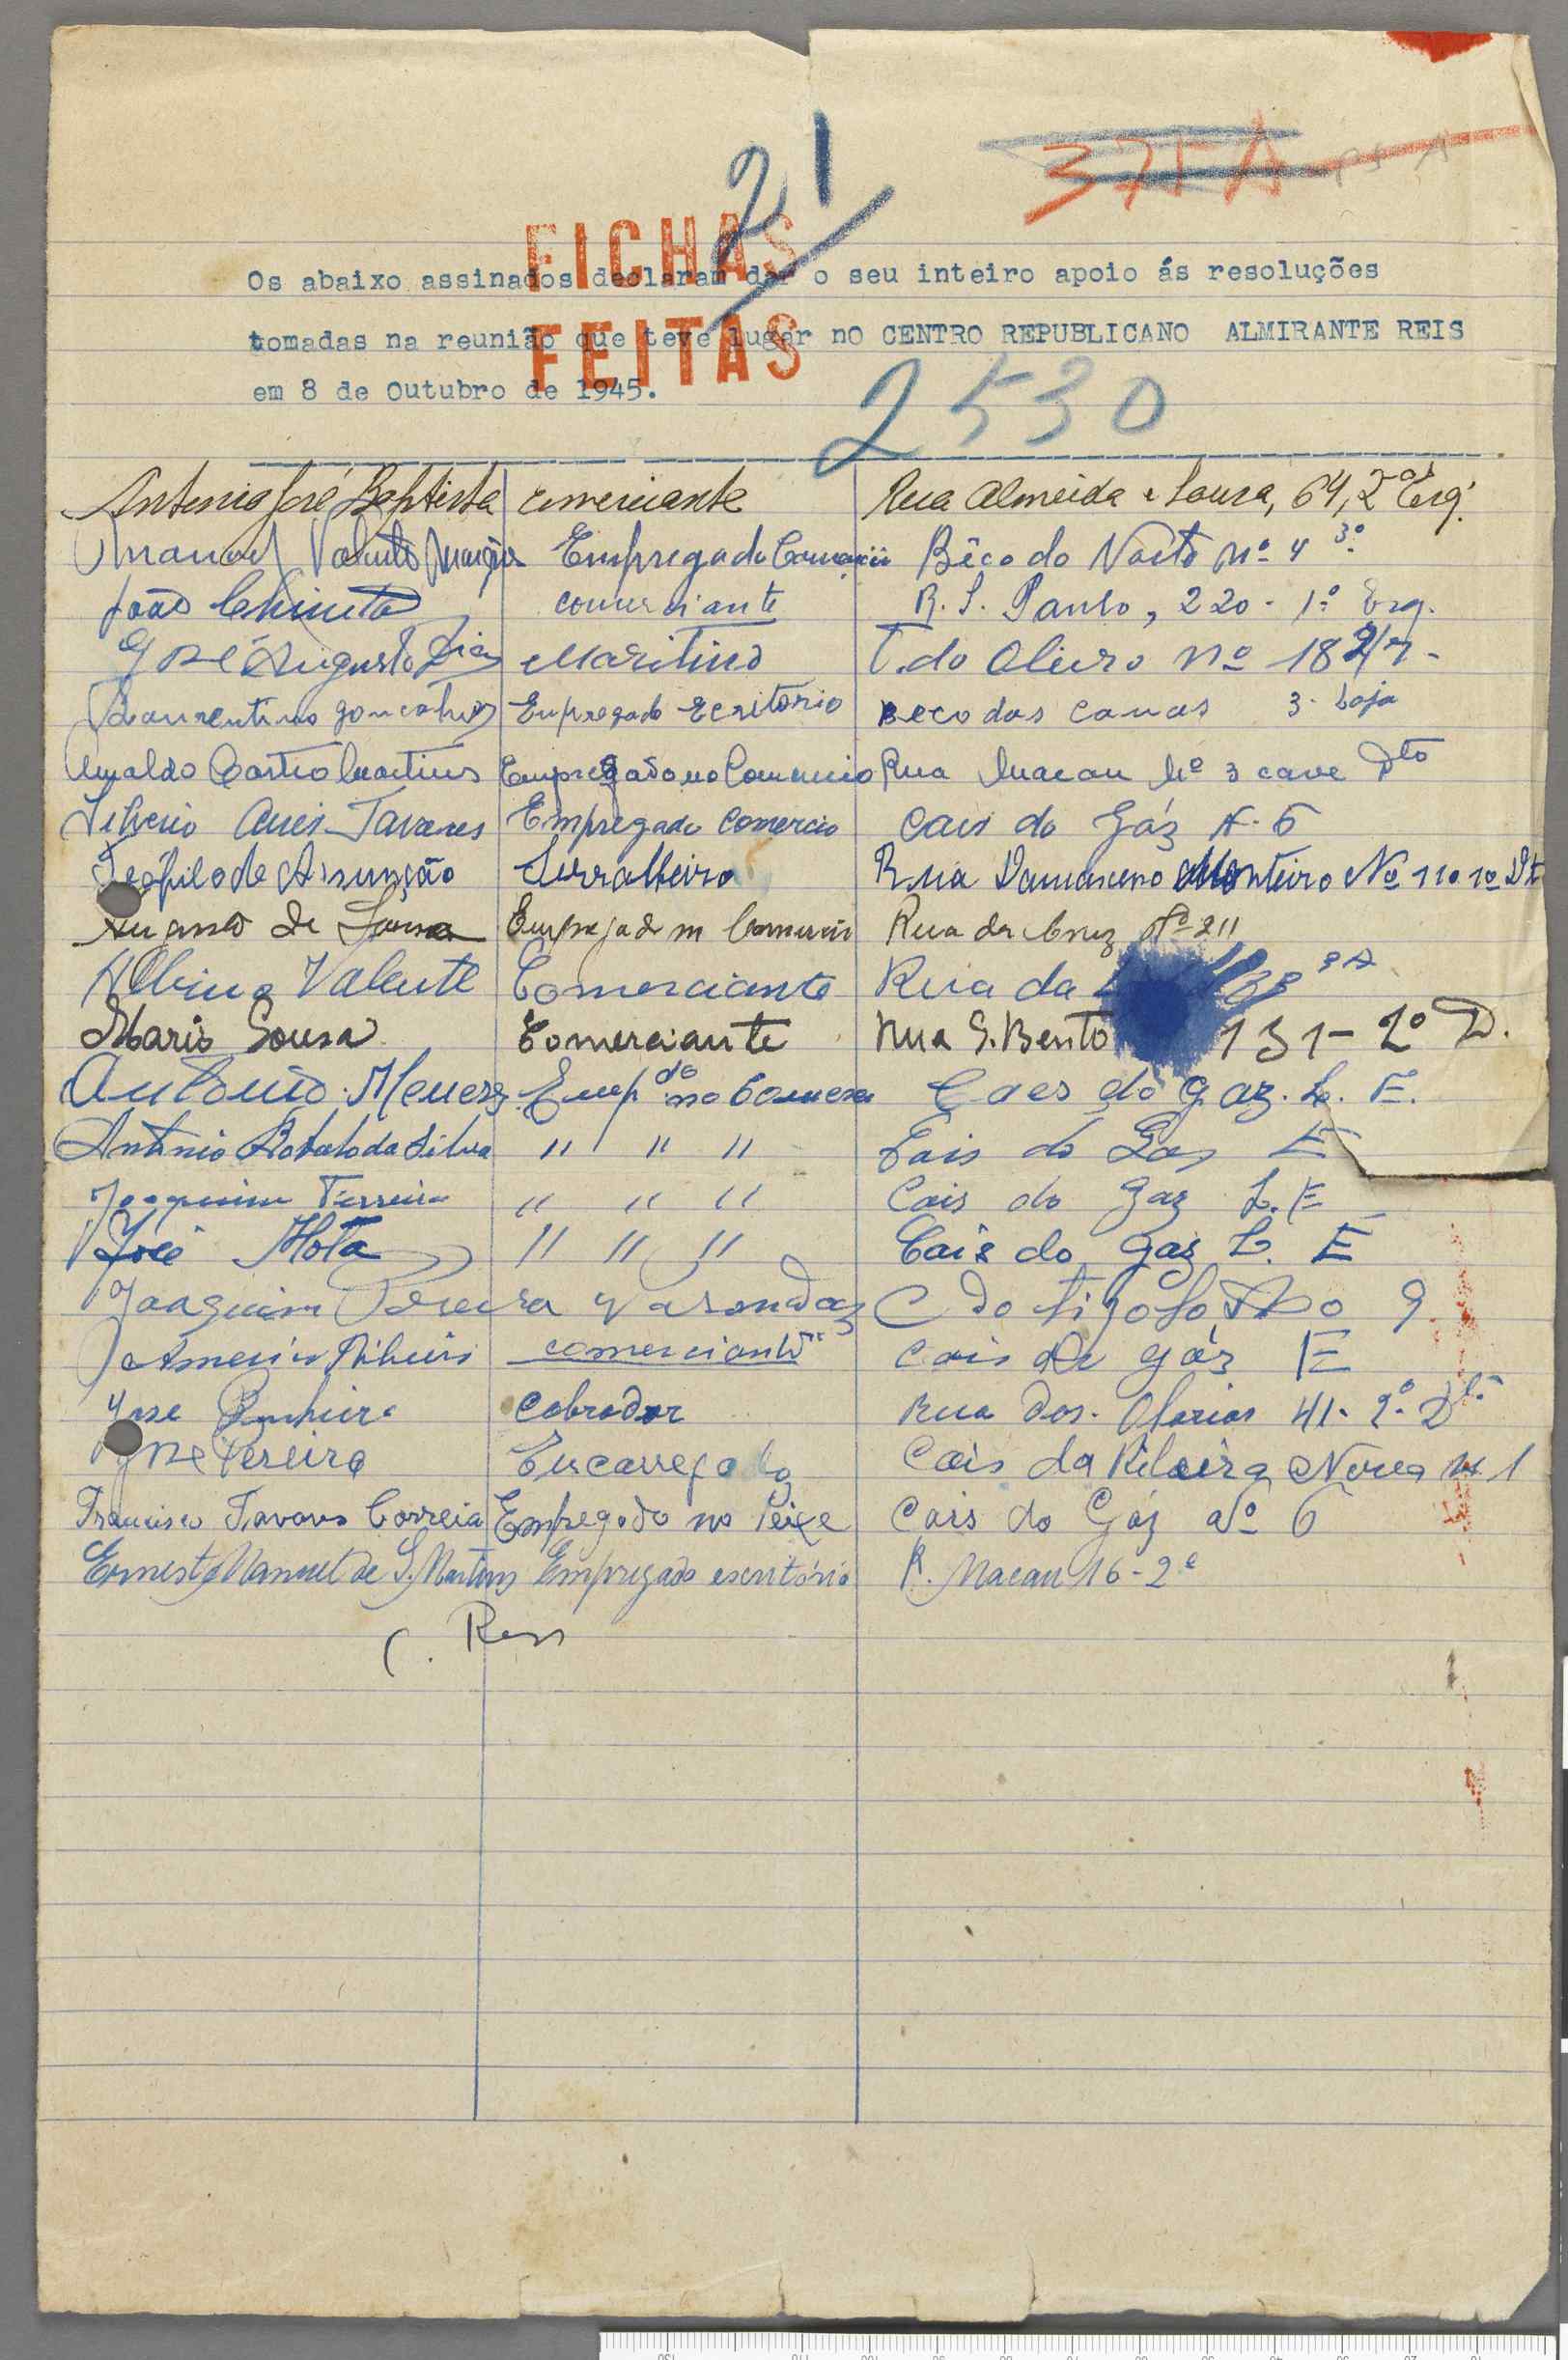 21
37FA
FICHAS
FEITAS
Os abaixo assinados declaram dar o seu inteiro apoio ás resoluções
tomadas na reunião que teve lugar nO CENTRO REPUBLICANO ALMIRANTE REIS
em 8 de Outubro de 1945.
2530
Antonio José Baptista comerciante Rua Almeida e Sousa, 64, 2º Esq.
Manoel Valente Empregado Bêco do Norte Nº 4 3º
João comerciante R. S. Paulo, 220 - 1º Esq.
José Augusto Dias Maritimo T. do Nº 18
Laurentino Gonçalves Empregado Ecritorio Beco das Canas 3 - Loja
Arnaldo Castro Martins Empregado no Comercio Rua Macau Nº 3 cave Dto
Silverio Tavares Empregado Comercio Cais do Gáz 6
Teófilo de Assunção Serralheiro Rua Damasceno Monteiro Nº 110 1º Dt
Augusto de Sousa Empregado no Comercio Rua da Cruz Nº 211
Albino Valente Comerciante Rua da
Mario Sousa Comerciante Rua S. Bento 131 - 2º D.
Antonio Menezes Emp do no Comercio Caes do gaz. L. E.
António Robalo da Silva " " " Cais do Gaz E
Joaquim Ferreira " " " Cais do Gaz L. E
José Mota " " " Cais do Gaz L. E
Joaquim Pereira C do Tijolo 9
Americo Ribeiro comerciante Cais do gáz E
José Pinheiro Cobrador Rua dos Olarias 41 - 2º Dto
José Pereira Encarregado Cais da Ribeira Nova 1
Francisco Tavares Correia Empregado no Peixe Cais do Gáz Nº 6
Ernesto Manuel de S. Martins Empregado escritório R. Macau 16 - 2º